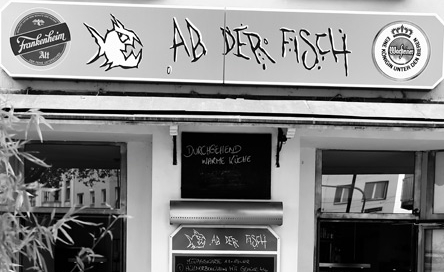 Frankenheim
Alt
AB DER FISCH
EINE KÖNIGIN UNTER DEN BIEREN
Warsteiner
DURCHGEHEND
WARME KÜCHE
AB DER FISCH